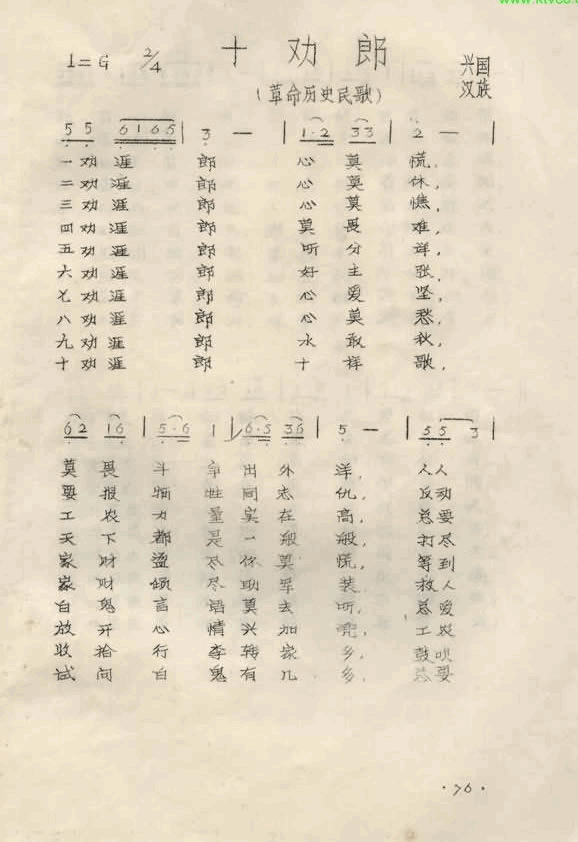 十劝郎
1=G 2/4
(革命历史民歌)
兴国
汉族
5 5 6165 | 3 — | 1·2 33 | 2 — |
一劝涯 郎 心莫慌,
二劝涯 郎 心莫休,
三劝涯 郎 心莫憔,
四劝涯 郎 莫畏难,
五劝涯 郎 听分详,
六劝涯 郎 好主张,
七劝涯 郎 心爱坚,
八劝涯 郎 心莫愁,
九劝涯 郎 水敢秋,
十劝涯 郎 十样歌,
62 16 | 5·6 1 | 6·5 36 | 5 — | 55 3 |
莫畏斗争出外洋, 人人
要报牺牲同志仇, 反动
工农力量实在高, 总要
天下都是一般般, 打尽
家财盪尽你莫慌, 等到
家财倾尽助军装, 救人
白鬼言语莫去听, 总爱
放开心情兴加 工农
收拾行李转家乡, 鼓
试问白鬼有几 总要
·76·